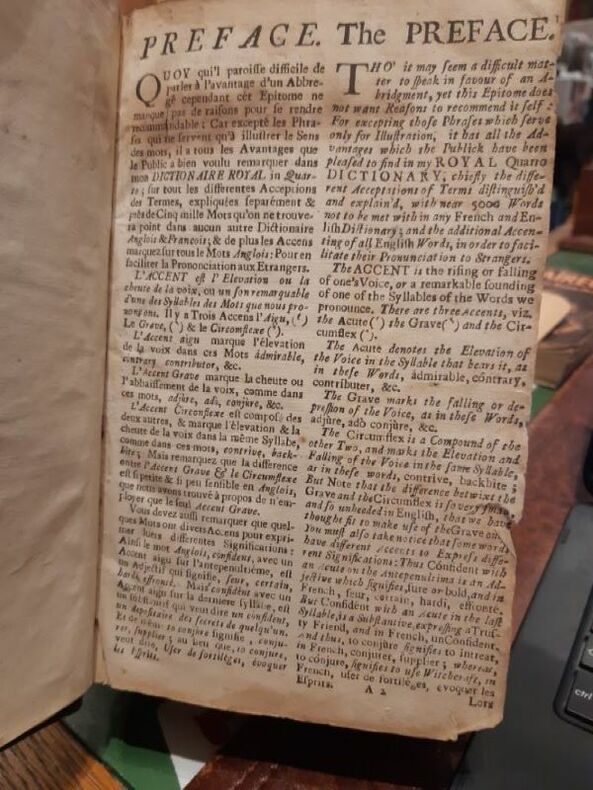 PREFACE.
QUOY qu'il paroisse difficile de
parler à l'avantage d'un Abbre-
gé cependant cét Epitome ne
manque pas de raisons pour se rendre
recommandable: Car excepté les Phra-
ses qui ne servent qu'à illustrer le Sens
des mots, il a tous les Avantages que
le Public a bien voulu remarquer dans
mon DICTIONAIRE ROYAL in Quar-
to; sur tout les differentes Acceptions
des Termes, expliquées separément &
près de Cinq mille Mots qu'on ne trouve-
ra point dans aucun autre Dictionaire
Anglois & François; & de plus les Accens
marquez sur tous le Mots Anglois: Pour en
faciliter la Prononciation aux Etrangers.
L'ACCENT est l'Elevation ou la
cheute de la voix, ou un son remarquable
d'une des Syllabes des Mots que nous pro-
nonçons. Il y a Trois Accens l'Aigu, (´)
Le Grave, (`) & le Circomflexe (ˆ).
L'Accent aigu marque l'élevation
de la voix dans ces Mots ádmirable,
cóntrary contríbuter, &c.
L'Accent Grave marque la cheute ou
l'abbaissement de la voix, comme dans
ces mots, adjùre, adò, conjùre, &c.
L'Accent Circonflexe est composé des
deux autres, & marque l'élevation & la
cheute de la voix dans la même Syllabe,
comme dans ces mots, contrîve, back-
bîte; Mais remarquez que la difference
entre l'Accent Grave & le Circomflexe
est si petite & si peu sensible en Anglois,
que nous avons trouvé à propos de n'em-
ployer que le seul Accent Grave.
Vous devez aussi remarquer que quel-
ques Mots ont divers Accens pour expri-
mer leurs differentes Significations:
Ainsi le mot Anglois, cónfident, avec un
Accent aigu sur l'antepenultiéme, est
un Adjectif qui signifie, seur, certain,
hardi, effronté. Mais confidént avec un
Accent aigu sur la derniere syllabe, est
un substantif qui veut dire un confident,
un depositaire des secrets de quelqu'un.
Et de même to conjúre signifie, conju-
rer, supplier; au lieu que, to cónjure,
veut dire, User de sortiléges, évoquer
les Esprits.
The PREFACE.
THO' it may seem a difficult mat-
ter to speak in favour of an A-
bridgment, yet this Epitome does
not want Reasons to recommend it self:
For excepting those Phrases which serve
only for Illustration, it has all the Ad-
vantages which the Publick have been
pleased to find in my ROYAL Quarto
DICTIONARY, chiefly the diffe-
rent Acceptations of Terms distinguish'd
and explain'd, with near 5000 Words
not to be met with in any French and En-
lish Dictionary; and the additional Accen-
ting of all English Words, in order to faci-
litate their Pronunciation to Strangers.
The ACCENT is the rising or falling
of one's Voice, or a remarkable sounding
of one of the Syllables of the Words we
pronounce. There are three Accents, viz.
the Acute (´) the Grave (`) and the Cir-
cumflex (ˆ).
The Acute denotes the Elevation of
the Voice in the Syllable that bears it, as
in these Words, ádmirable, cóntrary,
contríbuter, &c.
The Grave marks the falling or de-
pression of the Voice, as in these Words,
adjùre, adò conjùre, &c.
The Circumflex is a Compound of the
other Two, and marks the Elevation and
Falling of the Voice in the same Syllable,
as in these words, contrîve, backbîte;
But Note that the difference betwixt the
Grave and the Circumflex is so very small
and so unheeded in English, that we have
thought fit to make use of the Grave on
You must also take notice that some words
have different Accents to Express diffe-
rent Significations: Thus Cónfident with
an acute on the Antepenultima is an Ad-
jective which signifies, sure or bold, and in
French, seur, certain, hardi, effronté.
But Confidént with an acute in the last
Syllable, is a Substantive, expressing a Trus-
ty Friend, and in French, un Confident.
And thus, to conjúre signifies to intreat,
in French, conjurer, supplier; whereas,
to cónjure, signifies to use Witchcraft, in
French, user de sortiléges, évoquer les
Esprits.
A 2
Lors
ctrl